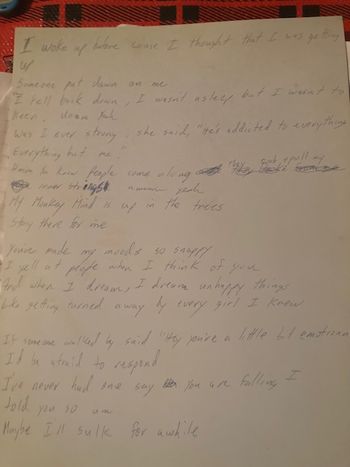 I woke up before cause I thought that I was getting
up
Someone put down on me
I fell back down, I wasn't asleep but I wasn't to
keen.
Was I ever strong, she said, "He's addicted to everything
Everything but me."
to know people come along They push & pull my
inner strings yeah
My Monkey Mind is up in the trees
Stay there for me
You've made my moods so snappy
I yell at people when I think of you
And when I dream, I dream unhappy things
Like getting turned away by every girl I knew
If someone walked by said "Hey you're a little bit emotional
I'd be afraid to respond
I've never had one say you are falling I
told you so um
Maybe I'll sulk for awhile